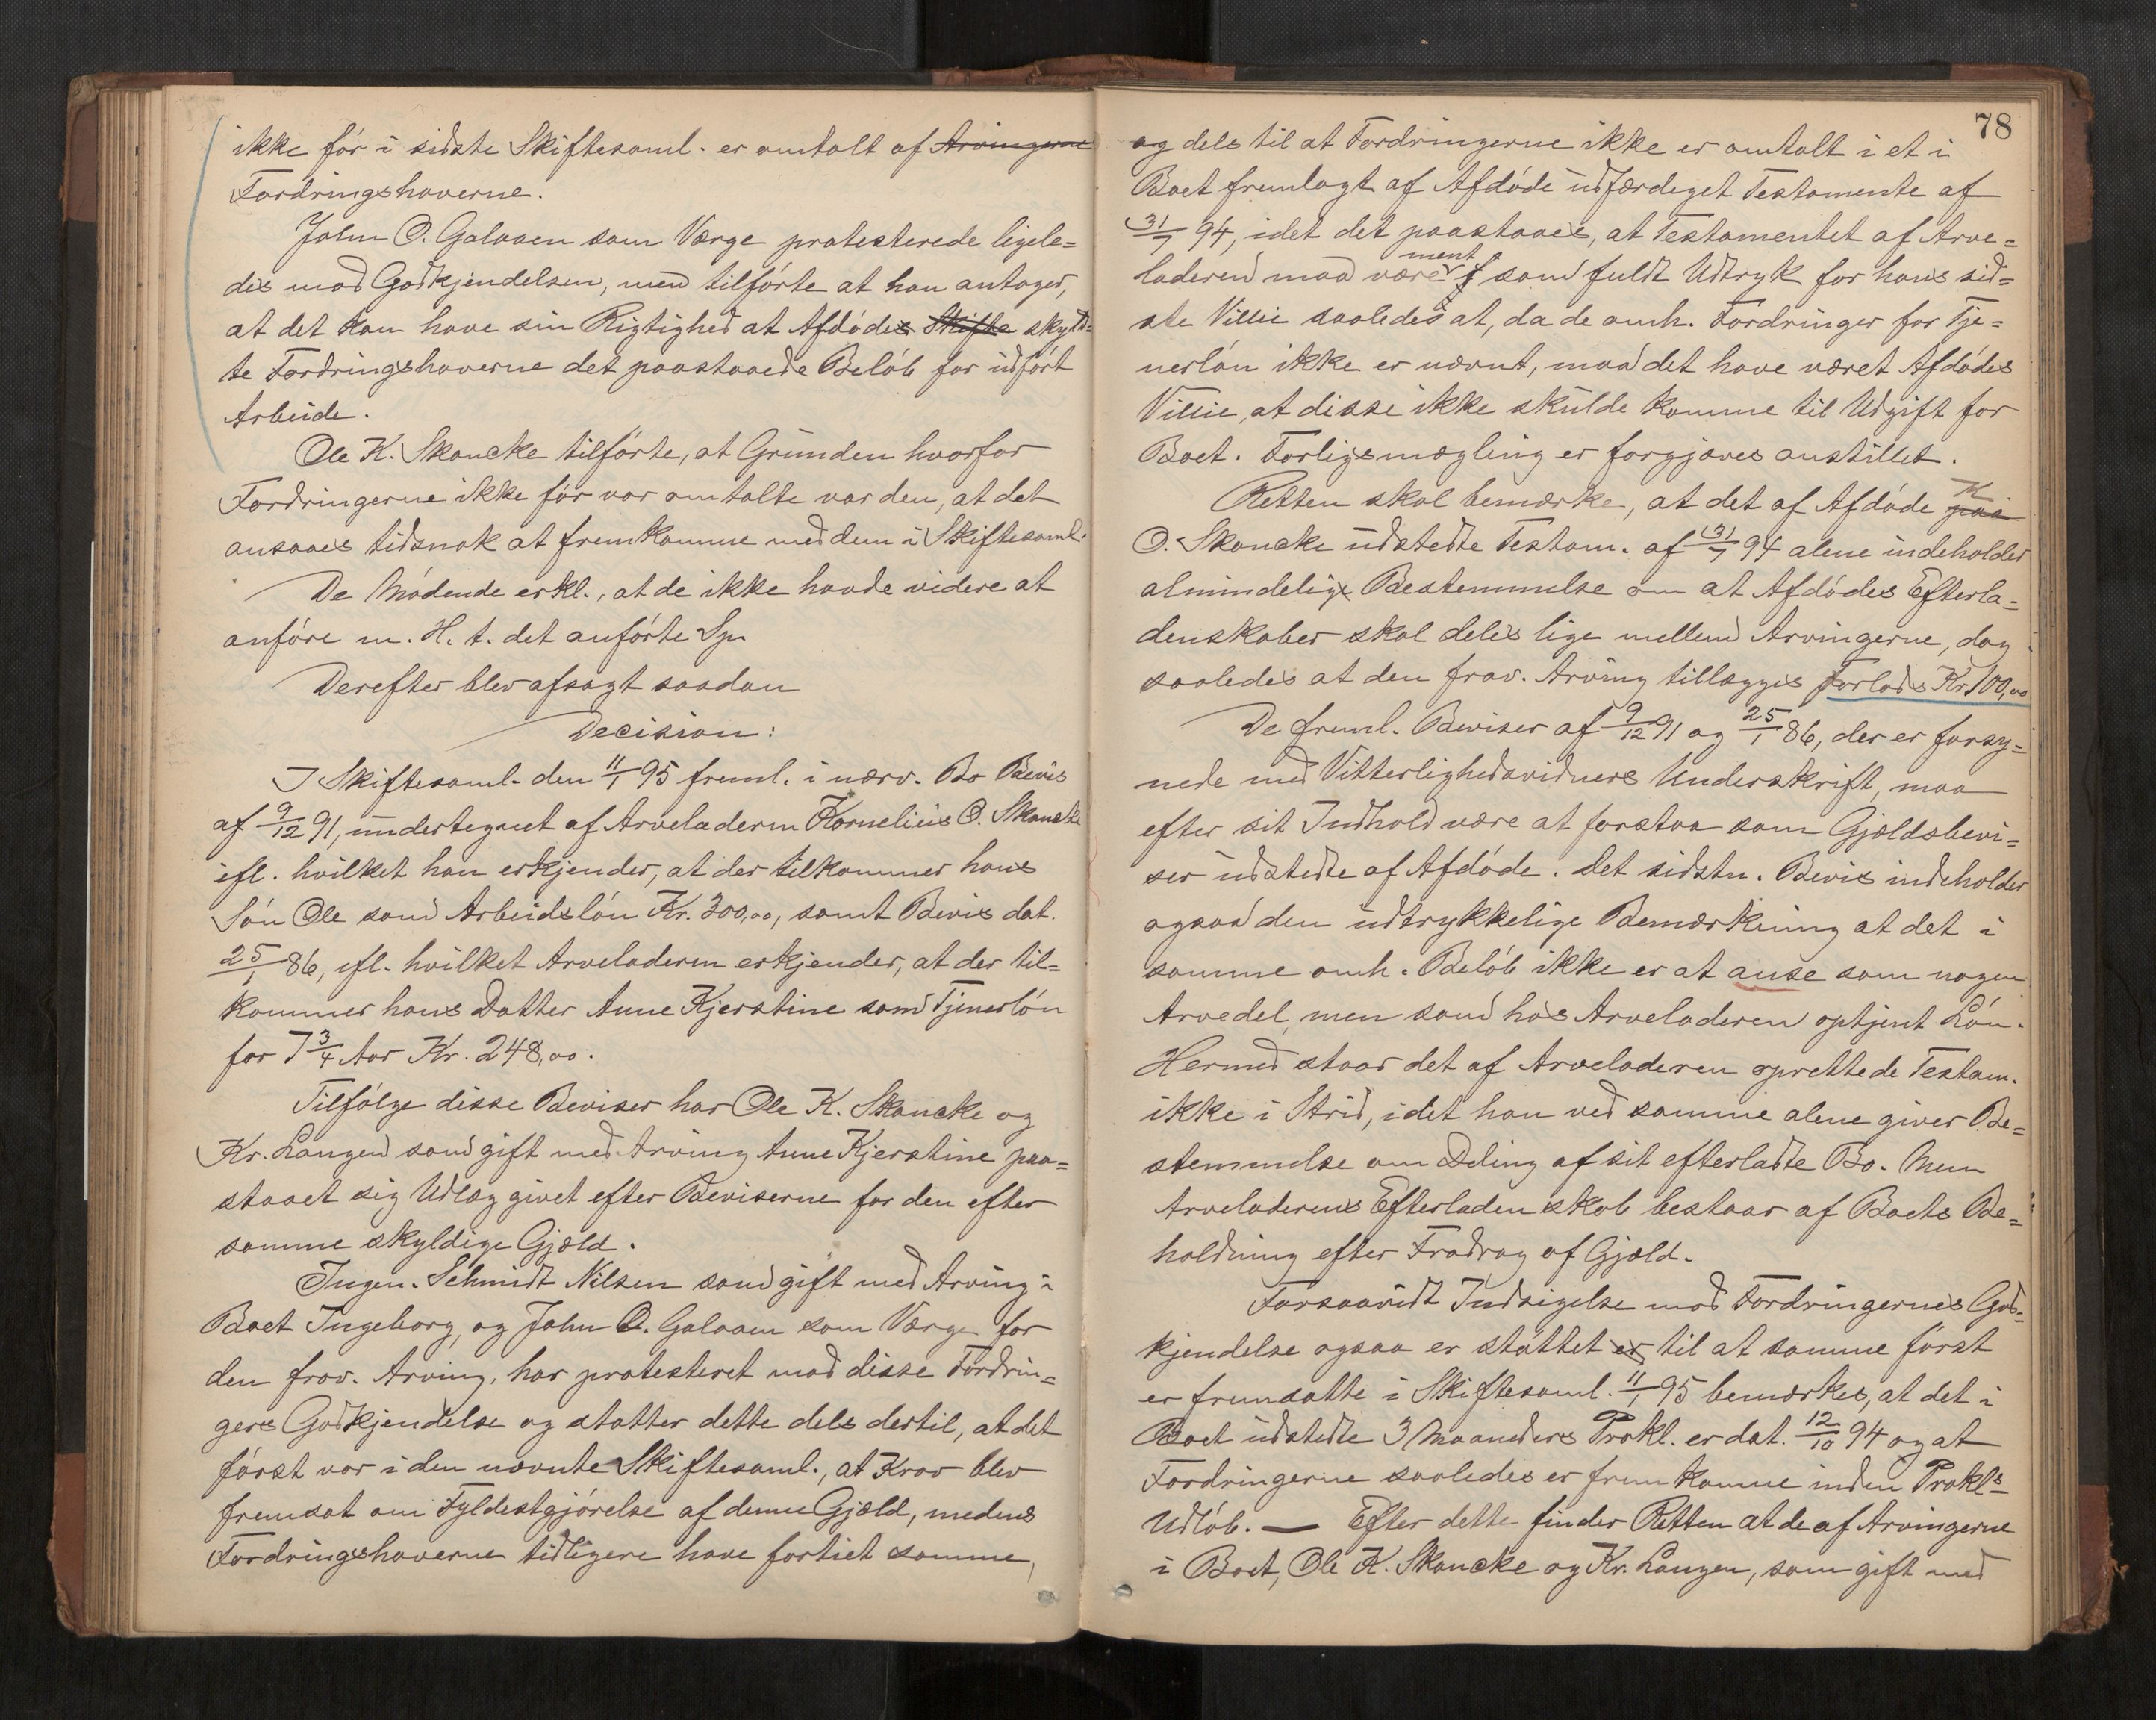 ikke før i sidste Skiftesaml. er omtalt af Arvingerne
Fordringshaverne.
John O. Galaaen som Værge protesterede ligele=
des mod Godkjendelsen, men tilførte at han antager,
at det kan have sin Rigtighed at Afdødes Skifte skyld=
te Fordringshaverne det paastaaede Beløb for udført
Arbeide.
Ole K. Skancke tilførte, at Grunden hvorfor
Fordringerne ikke før var omtalte var den, at det
ansaaes tidsnok at fremkomme med dem i Skiftesaml.
De Mødende erkl., at de ikke havde videre at
anføre m. H. t. det anførte Sp.
Derefter blev afsagt saadan
Decision:
I Skiftesaml. den 11/1 95 freml. i nærv. Bo Bevis
af 9/12 91, undertegnet af Arveladeren Kornelius O. Skancke
ifl. hvilket han erkjender, at der tilkommer hans
Søn Ole som Arbeidsløn Kr. 300,00, samt Bevis dat.
25/1 86, ifl. hvilket Arveladeren erkjender, at der til=
kommer hans Datter Anne Kjerstine som Tjenerløn
for 7 3/4 Aar Kr. 248,00.
Tilfølge disse Beviser har Ole K. Skancke og
Kr. Langen som gift med Arving Anne Kjerstine paa=
staaet sig Udlæg givet efter Beviserne for den efter
samme skyldige Gjæld.
Ingen. Schmidt Nilsen som gift med Arving i
Boet Ingeborg, og John O. Galaaen som Værge for
den frav. Arving, har protesteret mod disse Fordrin=
gers Godkjendelse og støtter dette dels dertil, at det
først var i den nævnte Skiftesaml., at Krav blev
fremsat om Fyldestgjørelse af denne Gjæld, medens
Fordringshaverne tidligere have fortiet samme,
78
og dels til at Fordringerne ikke er omtalt i et i
Boet fremlagt af Afdøde udfærdiget Testamente af
31/7 94, idet det paastaaes, at Testamentet af Arve=
ment
laderen maa være som fuldt Udtryk for hans sid=
ste Villie saaledes at, da de omh. Fordringer for Tje=
nerløn ikke er nævnt, maa det have været Afdødes
Villie, at disse ikke skulde komme til Udgift for
Boet. Forligsmægling er forgjæves anstillet.
Retten skal bemærke, at det af Afdøde paa K
O. Skancke udstedte Testam. af 31/7 94 alene indeholder
almindelige Bestemmelse om at Afdødes Efterla=
denskaber skal deles lige mellem Arvingerne, dog
saaledes at den frav. Arving tillægges forlods Kr. 100,00
De freml. Beviser af 9/12 91 og 25/1 86, der er forsy=
nede med Vitterlighedsvidners Underskrift, maa
efter sit Indhold være at forstaa som Gjældsbevi=
ser udstedte af Afdøde. Det sidstn. Bevis indeholder
ogsaa den udtrykkelige Bemærkning at det i
samme omh. Beløb ikke er at anse som nogen
Arvedel, men som hos Arveladeren optjent Løn.
Hermed staar det af Arveladeren oprettede Testam.
ikke i Strid, idet han ved samme alene giver Be=
stemmelse om Deling af sit efterladte Bo. Men
Arveladerens Efterladenskab bestaar af Boets Be=
holdning efter Fradrag af Gjæld.
Forsaavidt Indsigelse mod Fordringernes God=
kjendelse ogsaa er støttet er til at samme først
er fremsatte i Skiftesaml. 11/1 95 bemærkes, at det i
Boet udstedte 3 Maaneders Prokl. er dat. 12/10 94 og at
Fordringerne saaledes er fremkomne inden Prokls
Udløb. — Efter dette finder Retten at de af Arvingerne
i Boet, Ole K. Skancke og Kr. Langen, som gift med